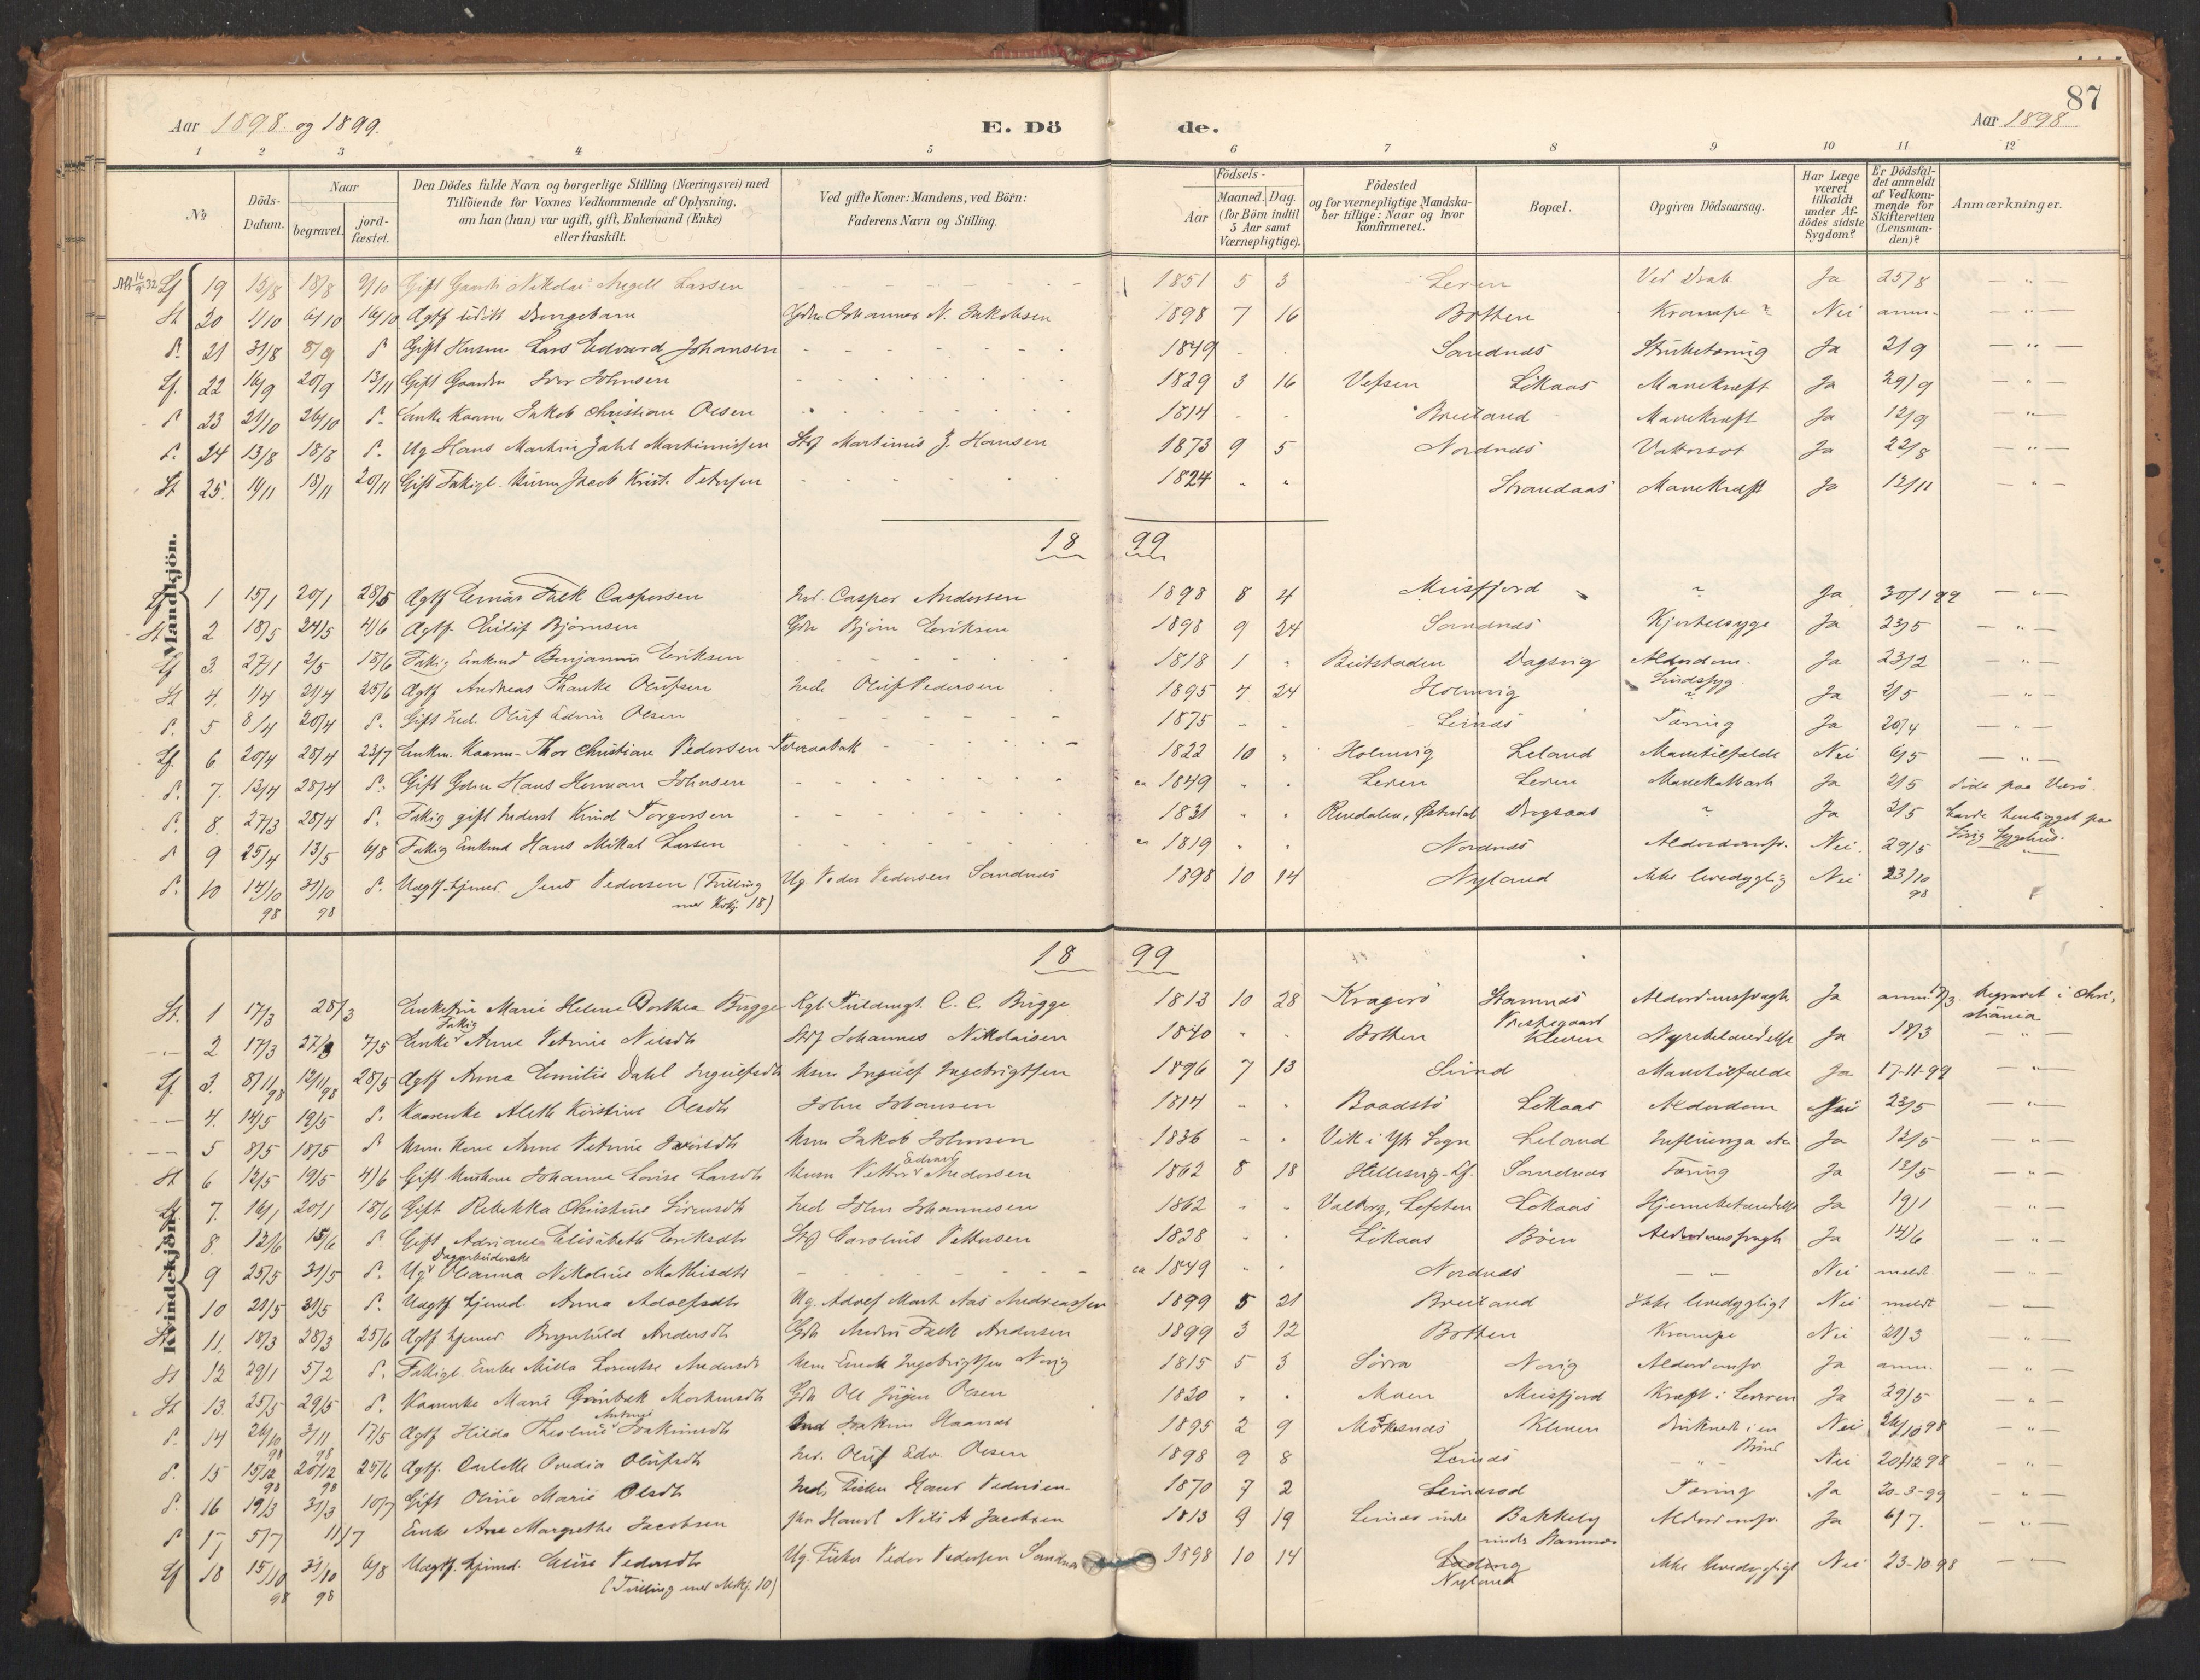 87
Aar 1898 og 1899. E. Dö de. Aar 1898
1 2 3 4 5 6 7 8 9 10 11 12
No
Döds-Datum.
Naar begravet. jordfæstet.
Den Dödes fulde Navn og borgerlige Stilling (Næringsvei) med Tilföiende for Voxnes Vedkommende af Oplysning, om han (hun) var ugift, gift, Enkemand (Enke) eller fraskilt.
Ved gifte Koner: Mandens, ved Börn: Faderens Navn og Stilling.
Födsels-
Aar Maaned. Dag. (for Börn indtil 5 Aar samt Værnepligtige).
Födested og for værnepligtige Mandskaber tillige: Naar og hvor konfirmeret.
Bopæl.
Opgiven Dödsaarsag.
Har Læge været tilkaldt under Afdödes sidste Sygdom?
Er Dödsfaldet anmeldt af Vedkommende for Skifteretten (Lensmanden)?
Anmærkninger.
Mandkjön.
19 13/8 18/8 9/10 Gift Nikolai Angell Larsen 1851 5 3 Leren Ved Drab Ja 25/8
St 20 1/10 6/10 16/10 Ægtf udöbt Drengebarn Gdm Johannes N. Jakobsen 1898 7 16 Botten Krampe? Nei anm.
21 31/8 8/9 Gift Husm Lars Edvard Johansen 1849 Sandnes Strubetæring Ja 2/9
22 16/9 20/9 13/11 Gift Gaardm Iver Johnsen 1829 3 16 Vefsen Lökaas Mavekræft Ja 29/9
23 21/10 26/10 Enke Jakob Christian Olsen 1814 Breiland Mavekræft Ja 12/9
24 13/8 18/8 Ug Hans Martin Dahl Martinussen Martinus J. Hansen 1873 9 5 Nordnes Vattersot Ja 22/8
St 25. 14/11 18/11 20/11 Gift Jacob Krist. Petersen 1824 Strandaas Mavekræft Ja 12/11
18 99
1 15/1 20/1 28/5 Ægtf Einar Falk Caspersen Ind. Casper Andersen 1898 8 4 Misfjord ? Ja 30/1 99
St 2 18/5 24/5 4/6 Ægtf. Eilif Björnsen Gdm Björn Eriksen 1898 9 24 Sandnes Kjertelsyge Ja 23/5
3. 27/1 2/5 18/6 Fattig Enkmd Benjamin Eriksen 1818 1 Beitstaden Dagsvig Alderdom. Ja 23/2
St 4. 1/4 21/4 25/6 Ægtf Andreas Hanke Olufsen Ind. Oluf Pedersen 1895 4 24 Holmvig Ja 2/5
5 8/4 20/4 Gift Ind. Oluf Edvin Olsen 1875 Leines Tæring Ja 20/4
6 20/4 28/4 23/7 Enkm. Thor Christian Pedersen 1822 10 Holmvig Leland Mavetilfælde Nei 6/5
7. 13/4 28/4 Gift Gdm Hans Herman Johnsen ca 1849 Leren Leren Mavekatharh Ja 2/5 Döde paa Værö.
8. 27/3 28/4 Fattig gift Inderst Knud Torgersen 1831 Rendalen, Østerdal Dregsaas ? Ja 2/5 Havde henligget paa Sörvig Sygehus.
9 25/4 13/5 6/8 Fattig Enkmd Hans Mikal Larsen ca 1819 Nordnes Alderdomsv. Nei. 29/5
10 14/10 98 31/10 98 Uægtf. hjemd. Jens Pedersen (Tvilling med Kvkj. 18) Ug. Peder Pedersen Sandnes 1898 10 14 Nyland ikke levedygtig Nei 23/10 98
18 99
Kvindekjön.
St. 1 17/3 28/3 Enkefru Marie Helene Dorthea Brigge Kgl. Fuldmgt. C. C. Brigge 1813 10 28 Kragerö Stamnes Præstegaard Alderdomssvagh. Ja anm. 17/3. begravet i Christiania
2 17/3 27/3 7/5 Fattig Enke Anne Petrine Nilsdtr Johannes Nikolaisen 1840 Botten Kleiven Nyrebetændelse Ja 18/3
3. 8/11 98 12/11 98 28/5 Ægtf Anna Emilie Dahl Ingulfsdtr Husm Ingulf Ingebrigtsen 1896 7 13 Sund Mavetilfælde Ja 17-11-99
4. 14/5 19/5 Kaarenke Aleth Kirstine Olsdtr John Johansen 1814 Baadstö Lökaas Alderdom Nei 23/5
5 8/5 18/5 Husm. Kone Anne Petrine Husm Jakob Johnsen 1836 Leland Influenza Ja 12/5
St 6 12/5 19/5 4/6 Gift Johanne Lovise Larsdtr Husm Petter Edvard Andersen 1862 8 18 Sandnes Tæring Ja 13/5
7. 16/1 20/1 18/6 Gift Rebekka Christine Sörensdtr Ind John Johannesen 1862 Valberg, Lofoten Lökaas Hjernebetændelse Ja 19/1
8. 12/6 15/6 Gift Adriane Elisabeth Eriksdtr Carolius Pettersen 1828 Lökaas Böen Alderdomssvagh Ja 14/6
9 25/5 31/5 Ug. Dagarbeiderske Oleanna Nikoline Mathisdtr ca 1849 Nordnes Nei meldt
10 21/5 31/5 Uægtf hjemd. Anna Adolfsdtr Ug. Adolf Mart. Aas Andreassen 1899 5 21 Breiland Ikke levedygtigt Nei meldt
St. 11. 18/3 28/3 25/6 Ægtf hjemd Brynhild Andersdtr Gdm Anders Falk Andersen 1899 3 12 Botten Krampe Nei 21/3
St 12 29/1 5/2 Fattigl. Enke Milla Lorentse Andersdtr Ingebrigtsen Novig 1815 5 3 Sörra Novig Alderdomsv. Ja anm.
St 13. 25/5 29/5 Kaarenke Marie Grönbæk Mortensdtr Gdm Ole Jörgen Olsen 1820 Moen Misfjord Kræft i Leveren Ja 29/5
14 26/10 98 3/11 98 17/5 Ægtf Hilda Theoline Antonie Joakimsdtr Ind Joakim Haanes 1895 2 9 Möksnes Kleiven Druknet i en Brönd Nei 26/10 98
15 15/12 98 20/12 98 25/6 Ægtf. Carlotte Ovedia Olufsdtr Ind. Oluf Edv. Olsen 1898 9 8 Leines Nei 20/12 98
16 19/3 31/3 10/7 Gift Oline Marie Olsdtr Ind, Fisker Hans Pedersen 1870 7 2 Leinesod Tæring Ja 20-3-99
17 5/7 11/7 Enke Ane Margrethe Jacobsen Nils A Jacobsen 1813 9 19 Leines indre Bakkely under Stamnes Alderdomsv. Ja 6/7.
18 15/10 98 31/10 98 6/8 Uægtf. hjemd. Elise Pedersdtr (Tvilling med Mkj. 10) Ug. Fisker Peder Pedersen Sandnes 1898 10 14 Nyland ikke levedygtigt Nei 23-10 98